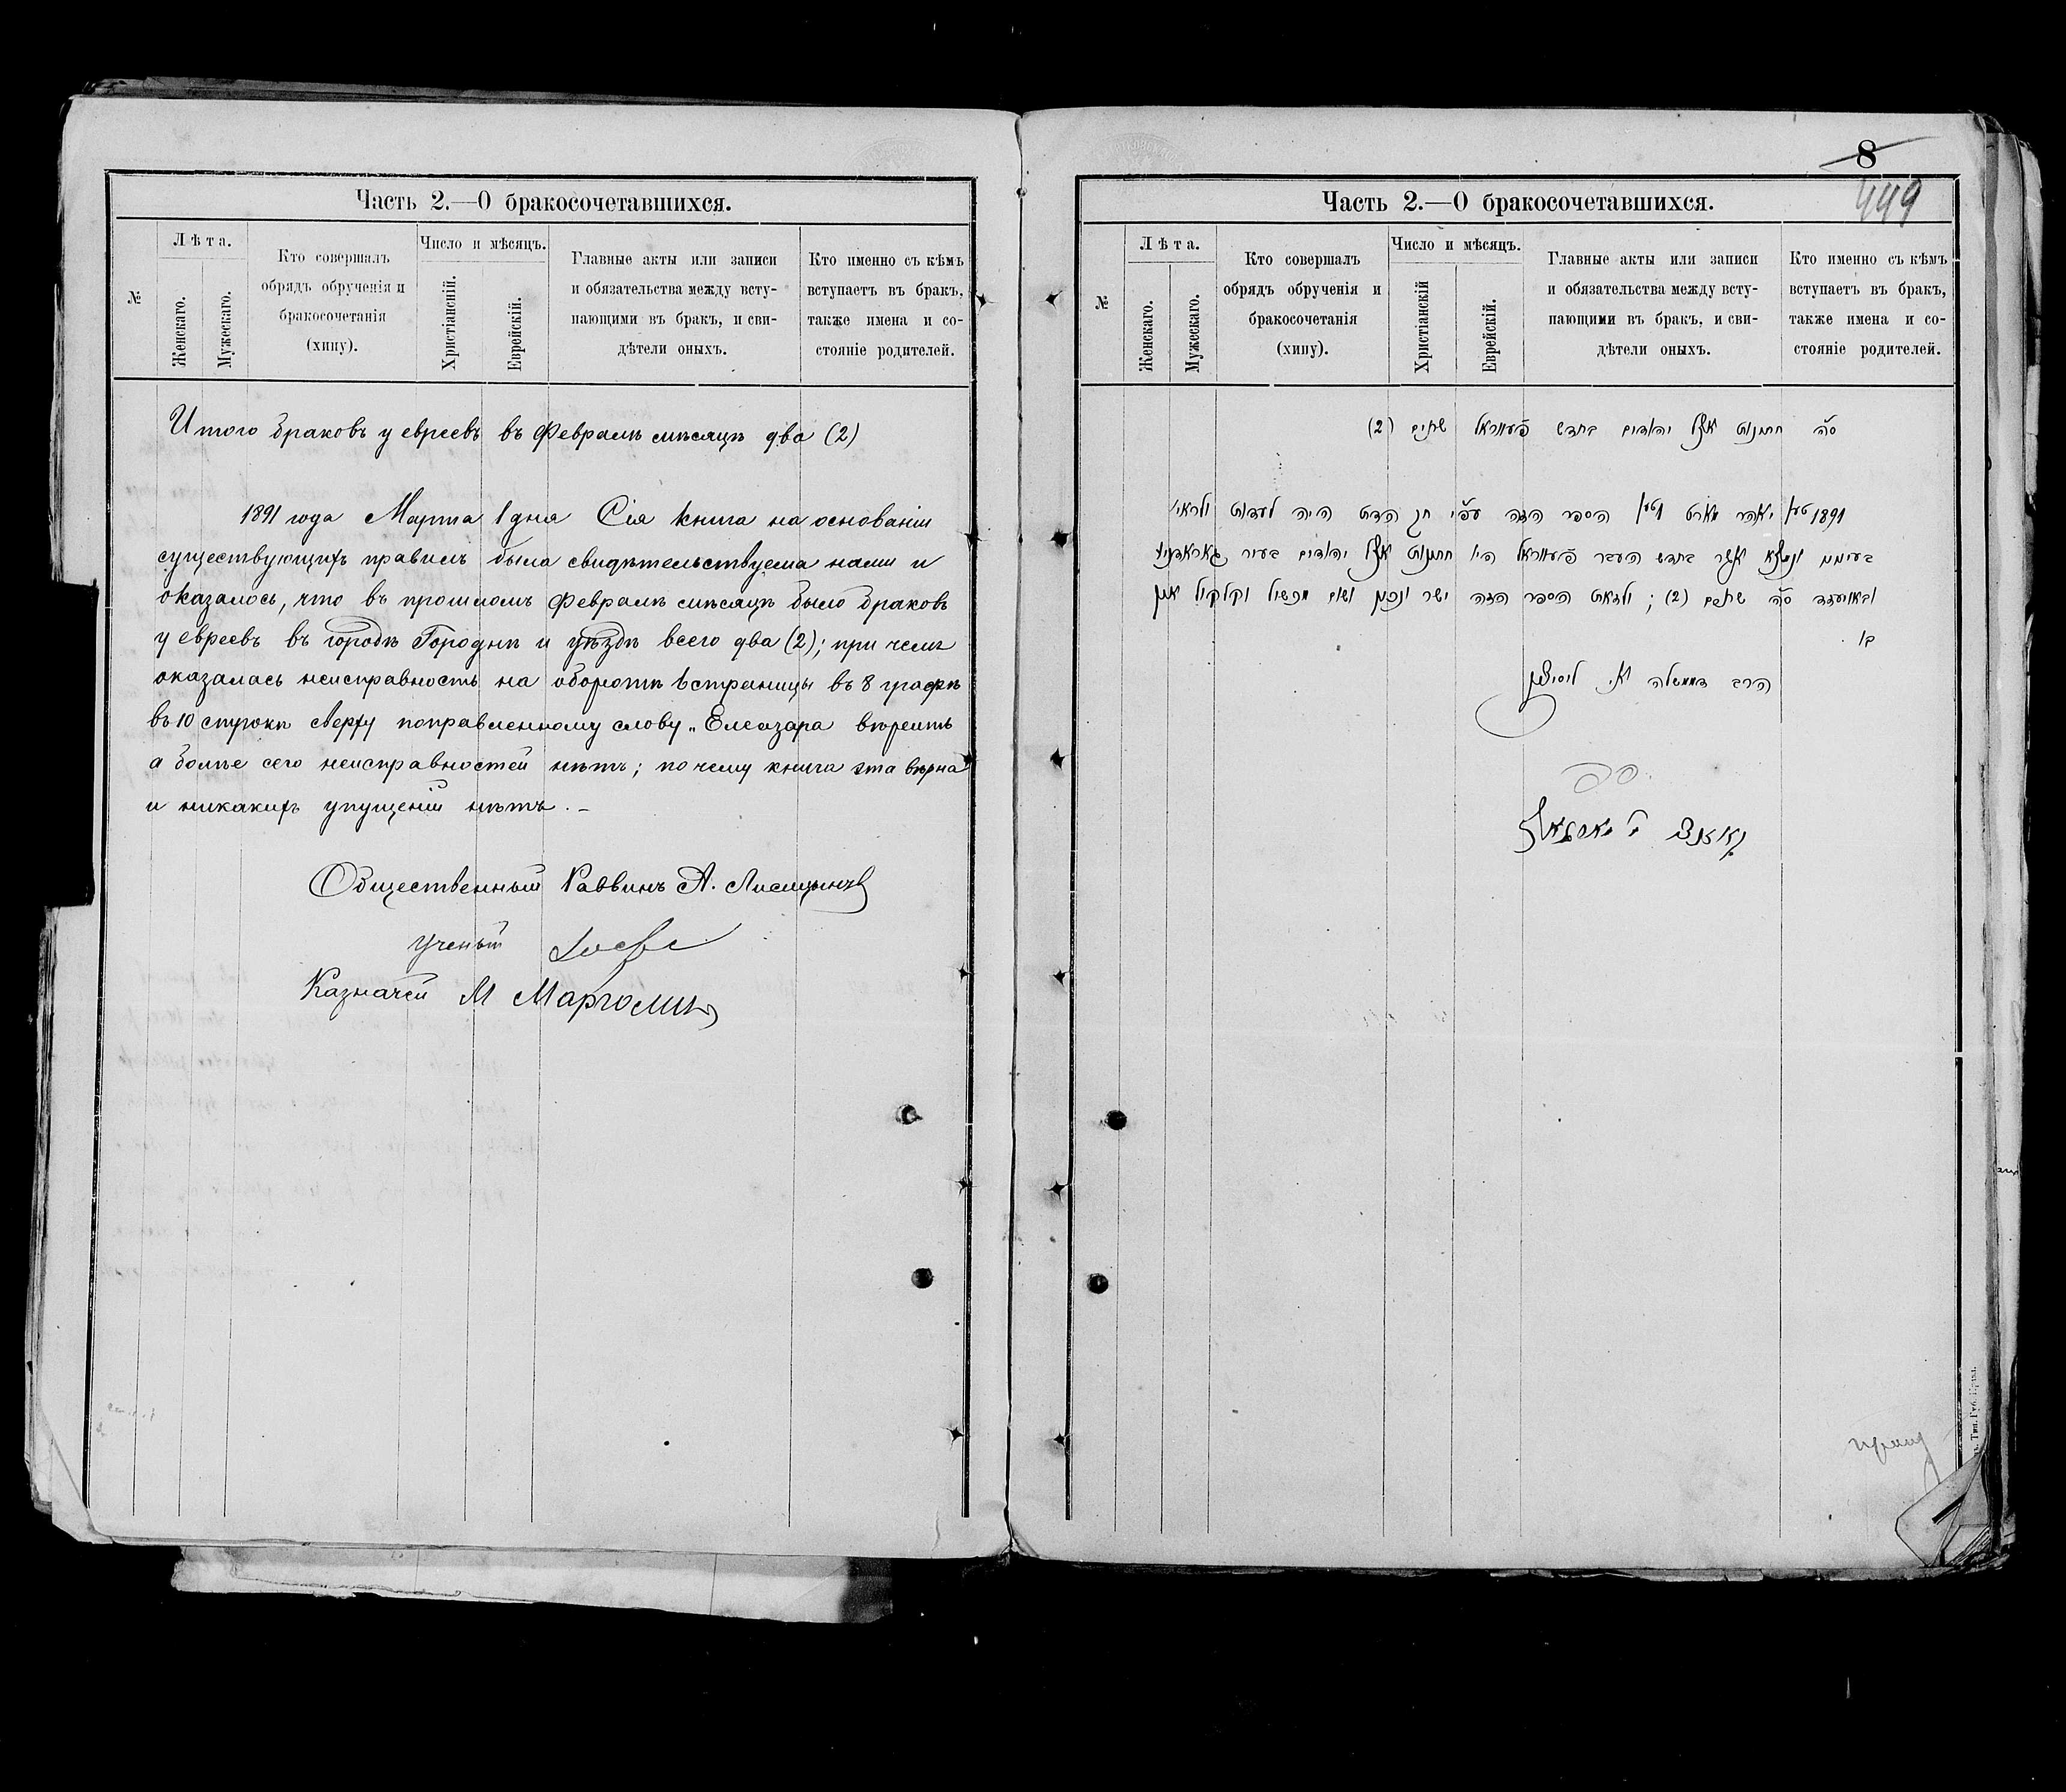 Часть 2.—О бракосочетавшихся.
№
Лѣта.
Женскаго.
Мужескаго.
Кто совершалъ
обрядъ обрученія и
бракосочетанія
(хипу).
Число и мѣсяцъ.
Христіанскій.
Еврейскій.
Главные акты или записи
и обязательства между всту-
пающими въ бракъ, и сви-
дѣтели оныхъ.
Кто именно съ кѣмъ
вступаетъ въ бракъ,
также имена и со-
стояніе родителей.
Итого браковъ у евреевъ въ Февралѣ мѣсяцѣ два (2)
1891 года Марта 1 дня Сія книга на основаніи
существующихъ правилъ была свидѣтельствуема нами и
оказалось, что въ прошломъ Февралѣ мѣсяцѣ было браковъ
у евреевъ въ городѣ Городнѣ и уѣздѣ всего два (2); при чемъ
оказалась неисправность на оборотѣ страницы въ 8 графѣ
въ 10 строкѣ сверху поправленному слову „Елеазара вѣрить
а болѣе сего неисправностей нѣтъ; почему книга эта вѣрна
и никакихъ упущеній нѣтъ. –
Общественный Раввинъ А.
Ученый
Казначей М Марголинъ
8
449
Часть 2.—О бракосочетавшихся.
№
Лѣта.
Женскаго.
Мужескаго.
Кто совершалъ
обрядъ обрученія и
бракосочетанія
(хипу).
Число и мѣсяцъ.
Христіанскій
Еврейскій.
Главные акты или записи
и обязательства между всту-
пающими въ бракъ, и сви-
дѣтели оныхъ.
Кто именно съ кѣмъ
вступаетъ въ бракъ,
также имена и со-
стояніе родителей.
ס״ה חתונות אצל יהודים בחדש פעווראל שתים (2)
1891 יאהר מארט הספר הזה עפ״י חק הדת היה לעדות ולראי׳
ונמצא אשר בחדש העבר פעווראל היו חתונות אצל יהודים בעיר
ס״ה שתים (2); ולזאת הספר הזה ישר ונכון ושום מכשול וקלקול אין
בו.
הרב